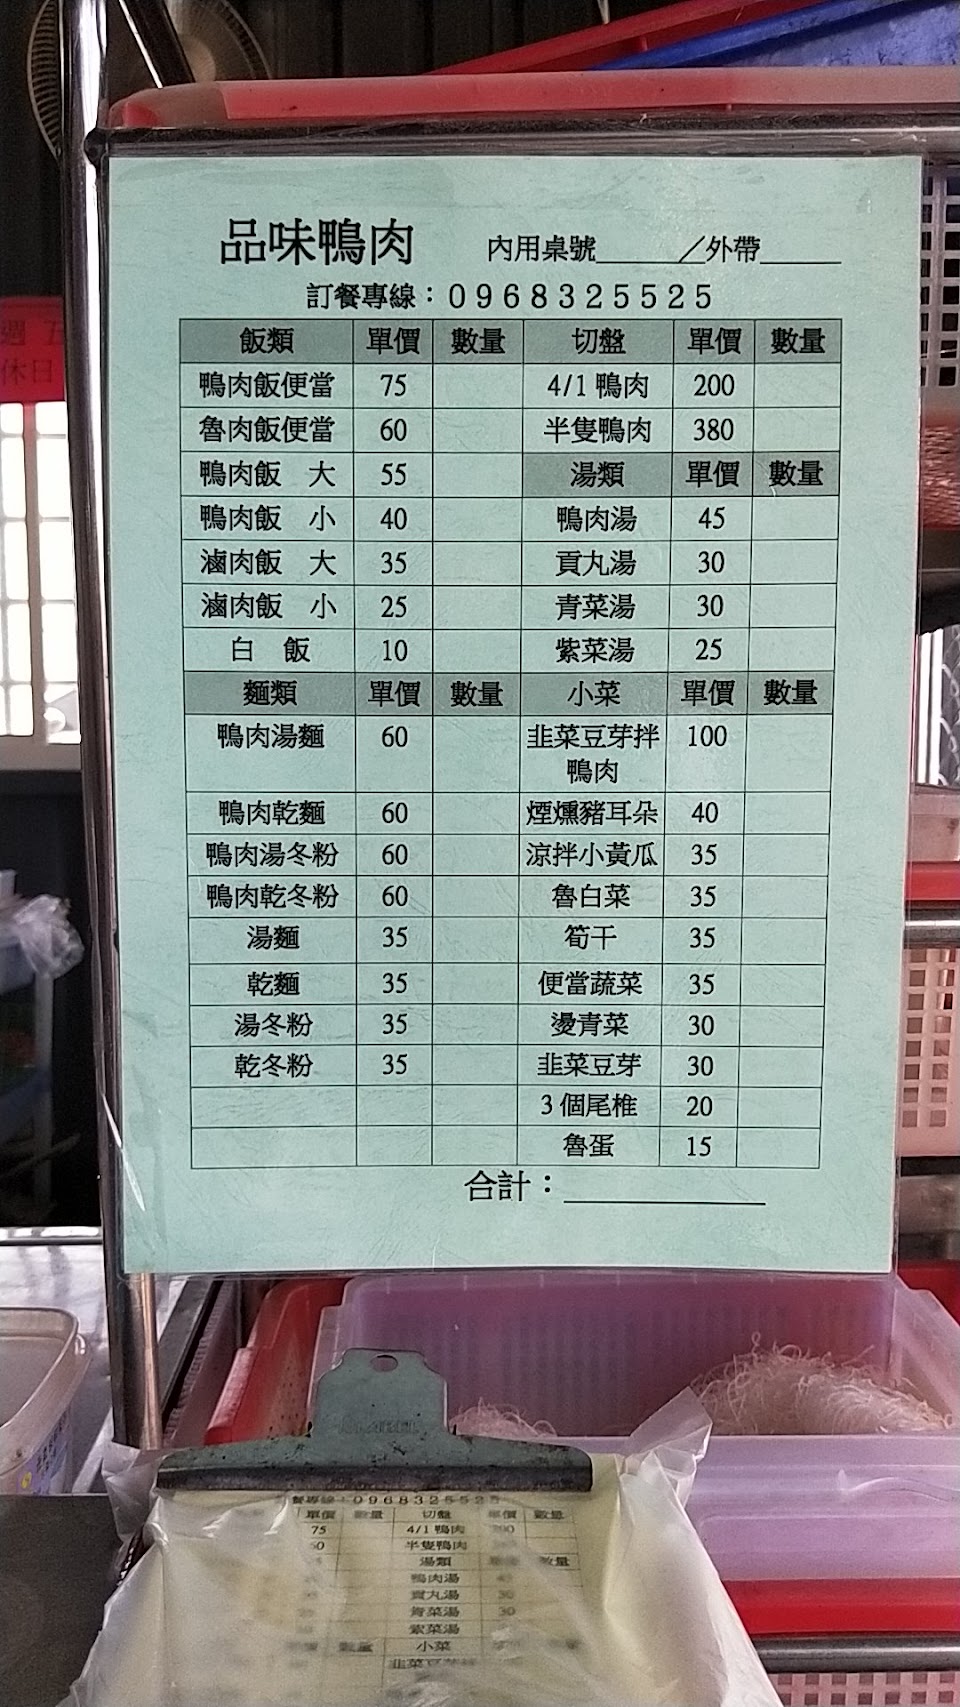 品味鴨肉 內用桌號______／外帶______
訂餐專線：0968325525
飯類 單價 數量 切盤 單價 數量
鴨肉飯便當 75 4/1 鴨肉 200
魯肉飯便當 60 半隻鴨肉 380
鴨肉飯 大 55 湯類 單價 數量
鴨肉飯 小 40 鴨肉湯 45
滷肉飯 大 35 貢丸湯 30
滷肉飯 小 25 青菜湯 30
白 飯 10 紫菜湯 25
麵類 單價 數量 小菜 單價 數量
鴨肉湯麵 60 韭菜豆芽拌 100
鴨肉
鴨肉乾麵 60 煙燻豬耳朵 40
鴨肉湯冬粉 60 涼拌小黃瓜 35
鴨肉乾冬粉 60 魯白菜 35
湯麵 35 筍干 35
乾麵 35 便當蔬菜 35
湯冬粉 35 燙青菜 30
乾冬粉 35 韭菜豆芽 30
3 個尾椎 20
魯蛋 15
合計：____________
週 五
休日
餐專線：0968325525
單價 數量 切盤 單價 數量
75 4/1 鴨肉 200
半隻鴨肉
湯類 數量
鴨肉湯
貢丸湯 30
青菜湯 30
紫菜湯
數量 小菜